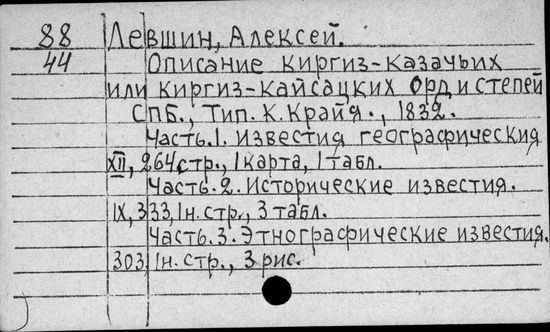 88 Левшин, Алексей.
44 Описание киргиз-казачьих
или киргиз-кайсацких орд и степей
СПБ., Тип. К. Крайя., 1832.
Часть.1. известия географические
XII, 264стр., 1карта, 1табл.
Часть.2. Исторические известия.
IX, 333, 1н.стр., 3табл.
Часть.3. Этнографические известия.
303, 1н.стр., 3рис.